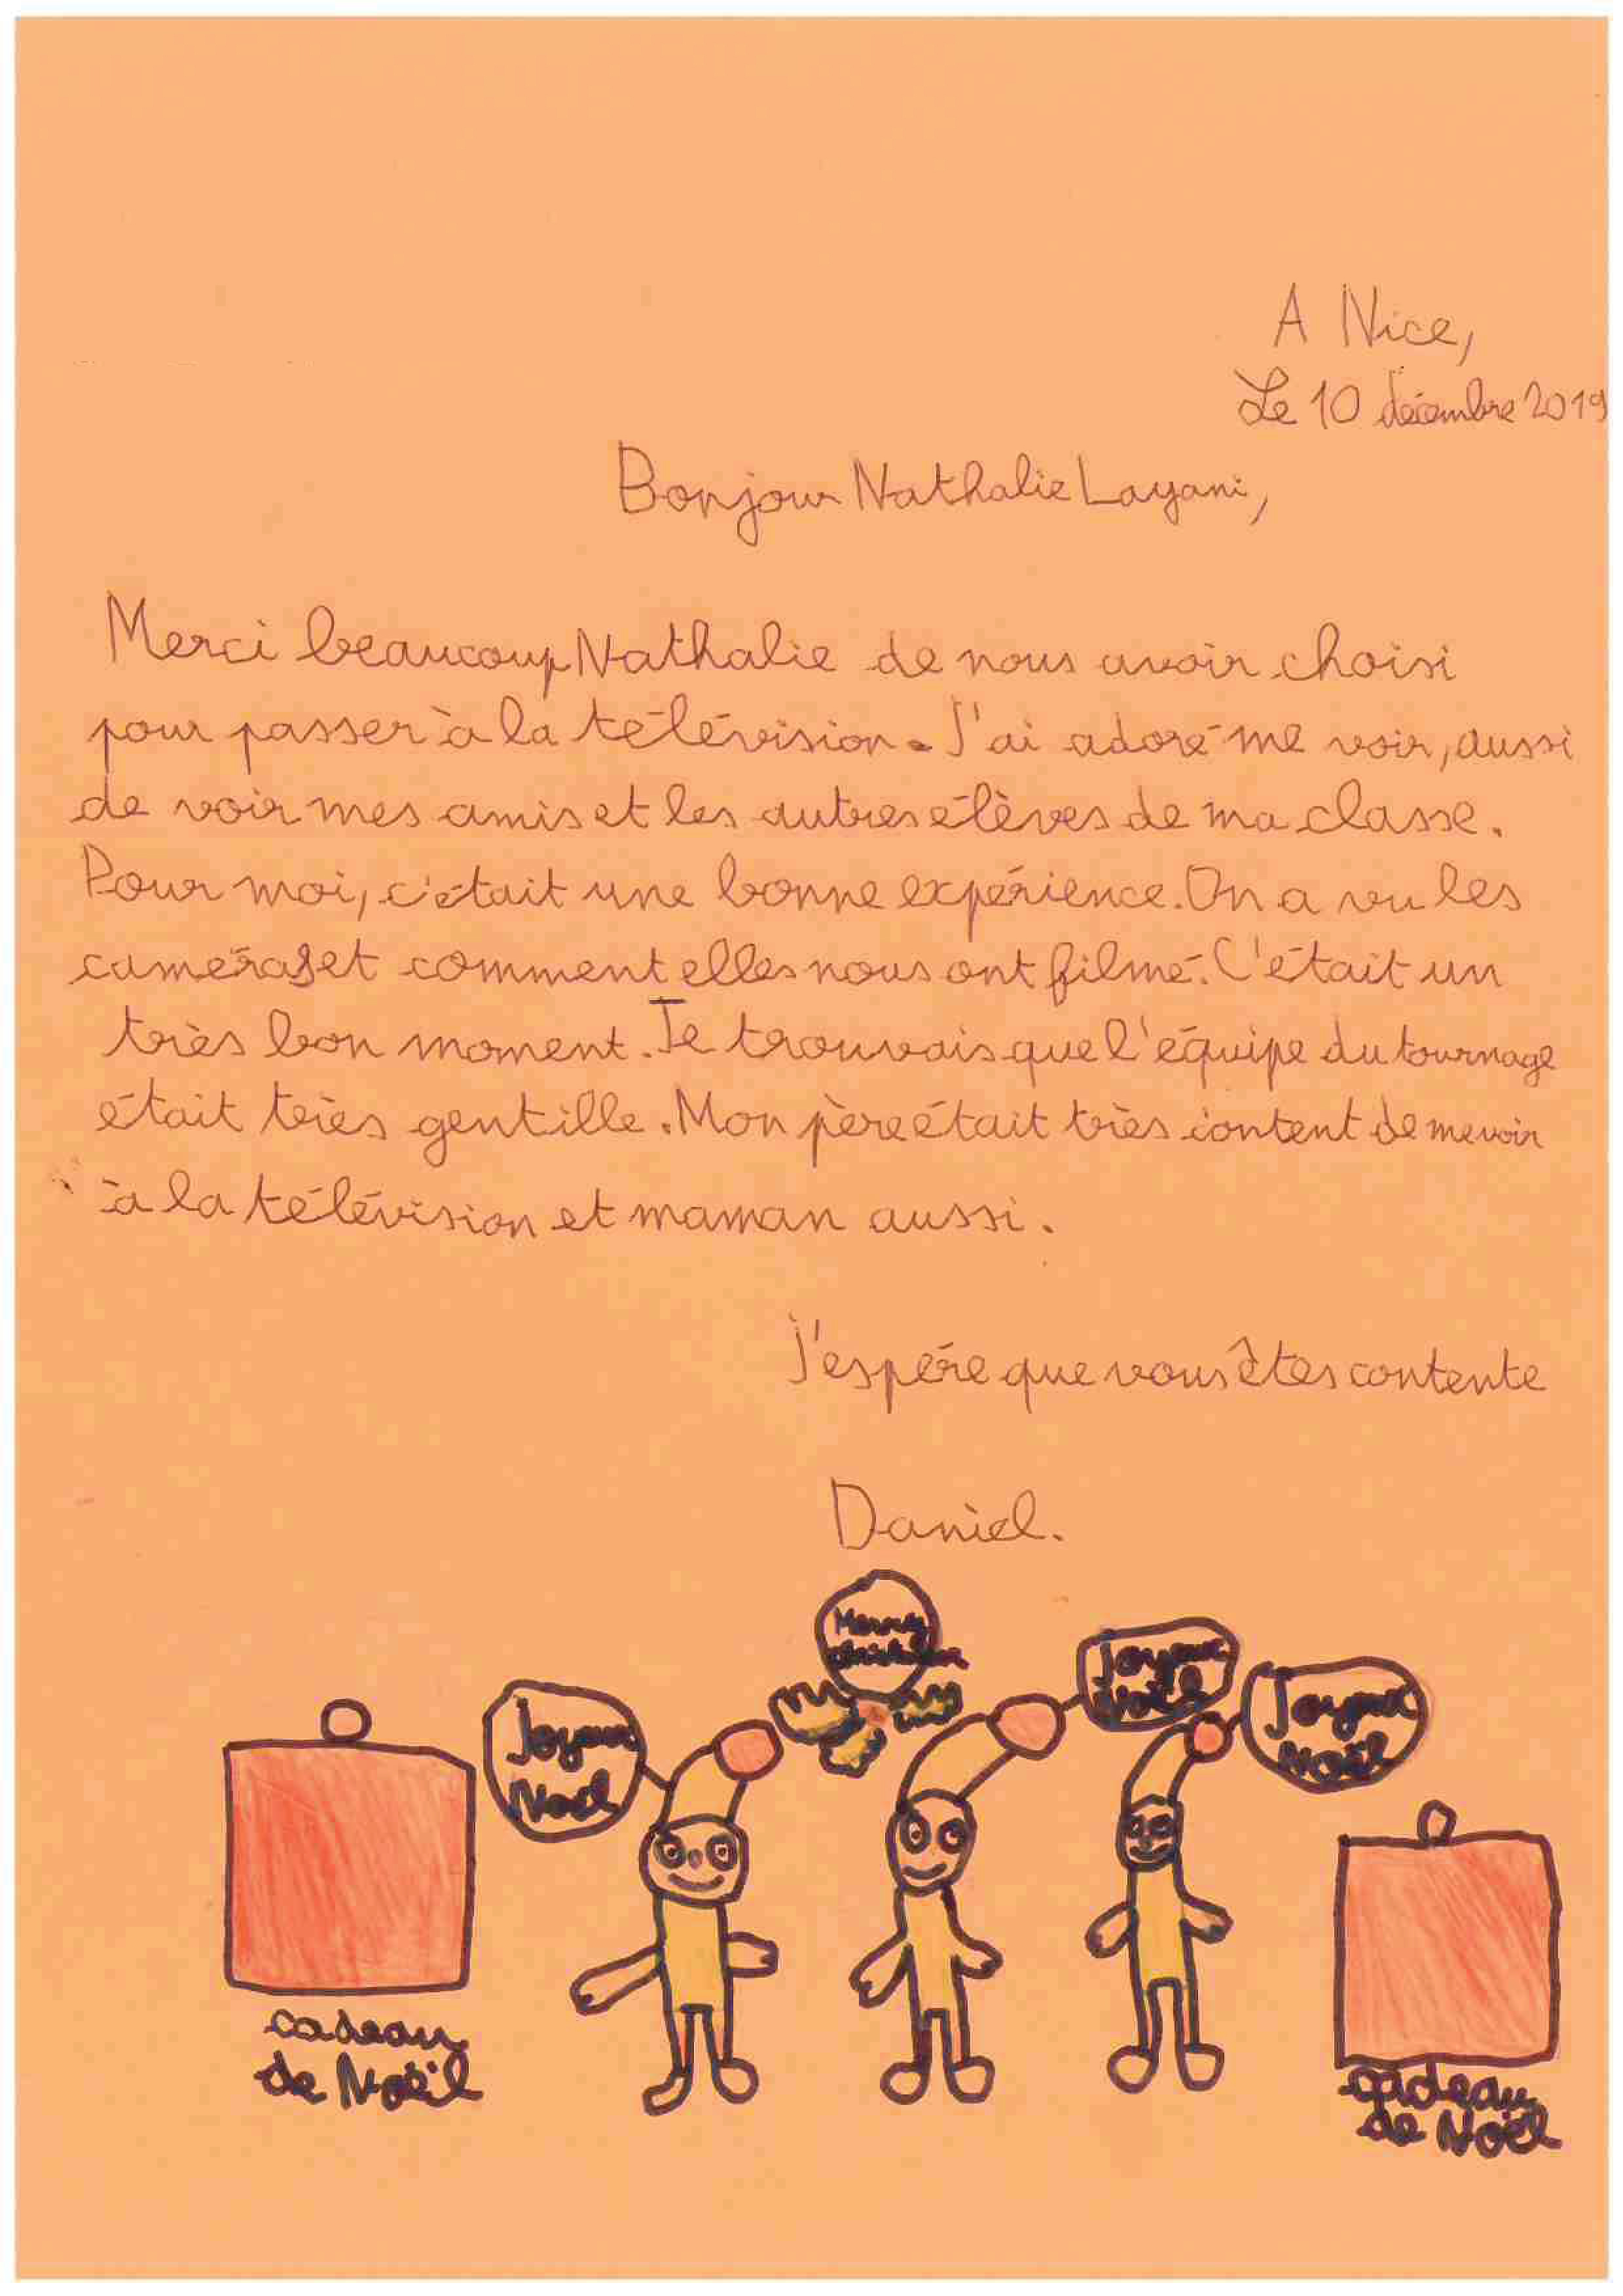 A Nice,
Le 10 décembre 2019
Bonjour Nathalie Layani,
Merci beaucoup Nathalie de nous avoir choisi
pour passer à la télévision. J'ai adoré me voir, aussi
de voir mes amis et les autres élèves de ma classe.
Pour moi, c'était une bonne expérience. On a vu les
caméras et comment elles nous ont filmé. C'était un
très bon moment. Je trouvais que l'équipe du tournage
était très gentille. Mon père était très content de me voir
à la télévision et maman aussi.
J'espére que vous êtes contente
Daniel.
Merry
Joyeux
Noël
Joyeux
Noël
Joyeux
Noël
cadeau
de Noël
cadeau
de Noël